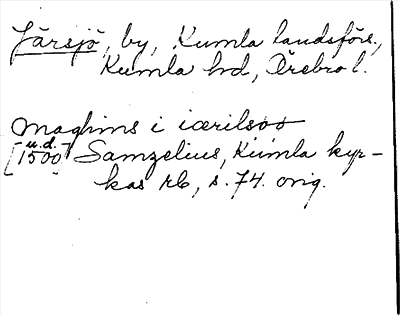 Järsjö, by, Kumla landsförs.,
Kumla hd, Örebro l.
maghins i iærilsøø
[u.d. 1500] Samzelius, Kumla kyr-
kas rb, s. 74. orig.